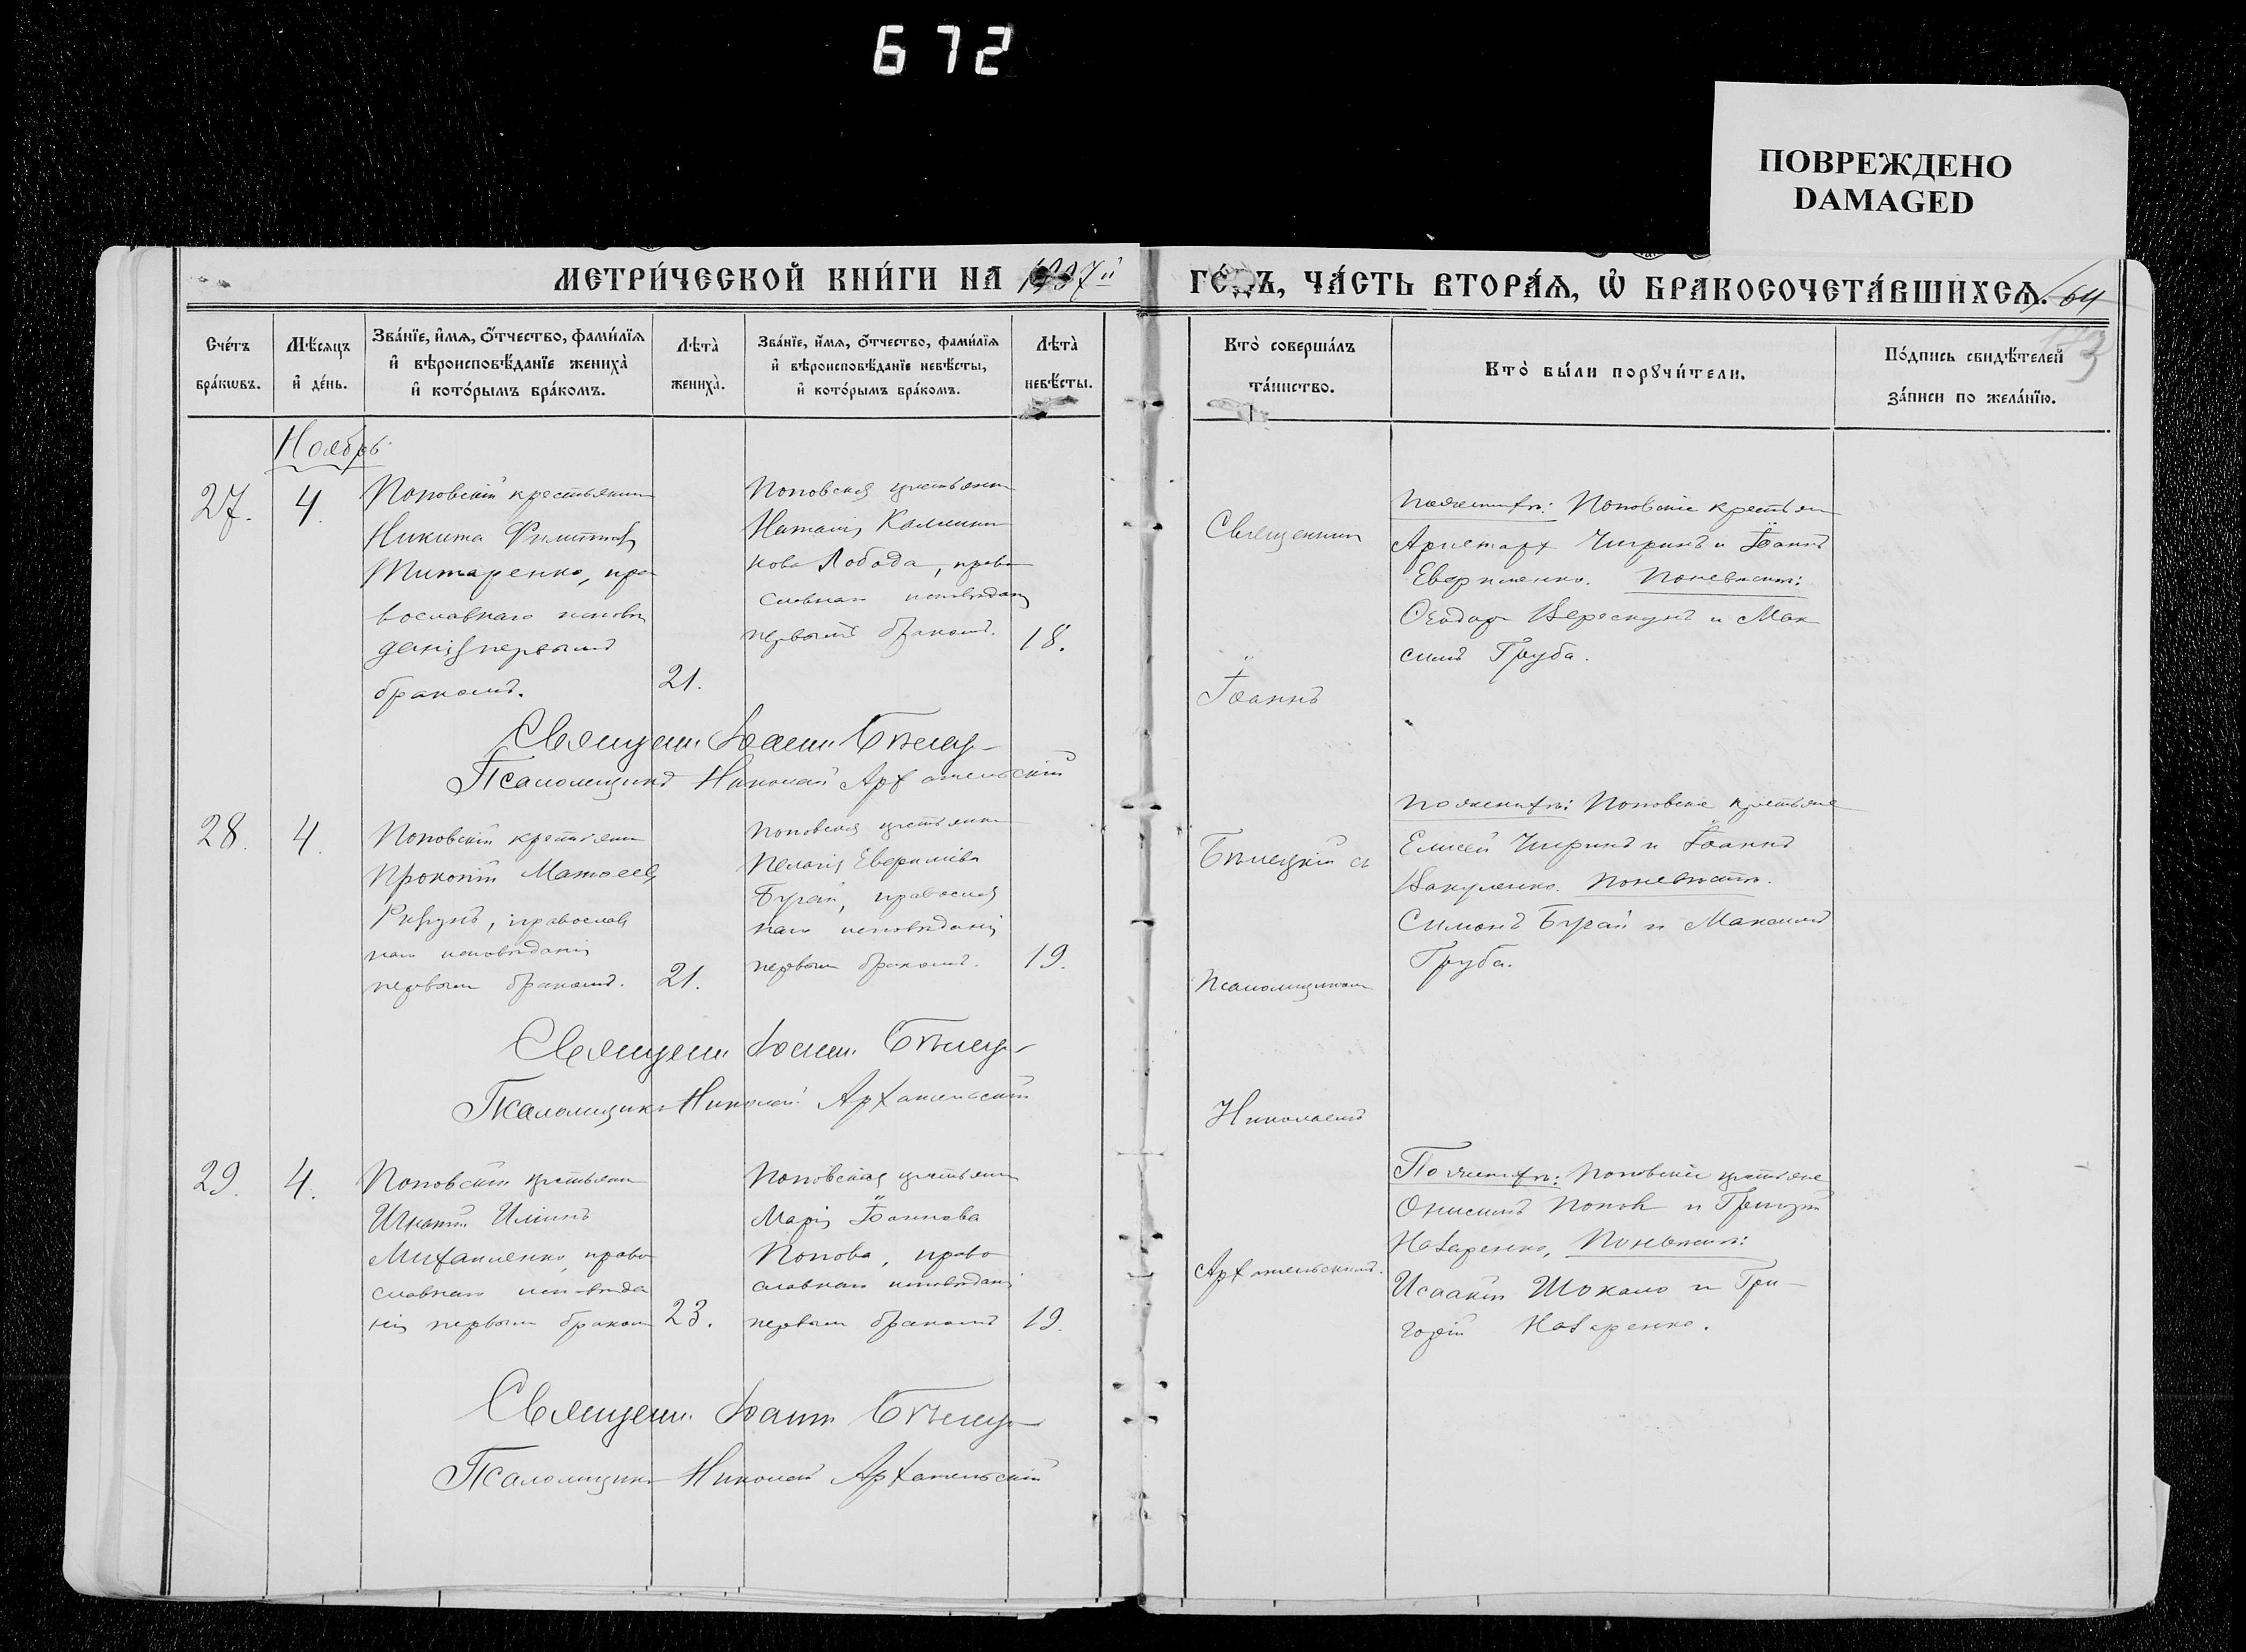 672
ПОВРЕЖДЕНО
DAMAGED
МЕТРИ́ЧЕСКОЙ КНИ́ГИ НА
ГО́ДЪ, ЧА́СТЬ ВТОРА́Ѧ, Ѡ҆ БРАКОСОЧЕТА́ВШИХСѦ. 64
Сче́тъ бра́кѡвъ.
Мѣ́сяцъ и҆ де́нь.
Зва́нїе, и҆́мѧ, ѻ҆́тчество, фами́лїѧ и҆ вѣроисповѣ́данїе жениха̀ и҆ кото́рымъ бра́комъ.
Лѣта̀ жениха̀.
Зва́нїе, и҆́мѧ, ѻ҆́тчество, фами́лїѧ и҆ вѣроисповѣ́данїе невѣ́сты, и҆ кото́рымъ бра́комъ.
Лѣта̀ невѣ́сты.
Кто̀ соверша́лъ та́инство.
Кто̀ бы́ли порꙋчи́тели.
По́дпись свидѣ́телей за́писи по жела́нїю.
Ноябрь
27.
4.
Поповскій крестьянин
Никита
Титаренко, пра
вославнаго исповѣ
данія первымъ
бракомъ.
21.
Поповская крестьянка
Наталія Каллини
кова Лобода, право
славнаго исповѣданія
первымъ бракомъ.
18.
Священник
Іоаннъ
По женихѣ: Поповскіе крестьян
Аристархъ Чигринъ и Іоаннъ
Евфименко. По невѣстѣ:
Ѳеодоръ Верескунъ и Мак
симъ Груба.
Священ. Іоанн Бѣлец
Псаломщикъ Николай Архангельскій
28.
4.
Поповскій крестьянин
Прокопій Матѳеевъ
православ
наго исповѣданія
первым бракомъ.
21.
Поповская крестьянка
Пелагія Евфиміева
Бугай, православ
наго исповѣданія
первым бракомъ.
19.
Бѣлецкій съ
Псаломщиком
По женихѣ: Поповскіе крестьяне
Елисей Чигринъ и Іоаннъ
Вакуленко. По невѣстѣ.
Симонъ Бугай и Максимъ
Груба.
Священ. Іоанн. Бѣлец
Псаломщикъ Николай Архангельскій
Николаемъ
29.
4.
Поповскій крестьянин
Игнатій Иліинъ
Михайленко, право
славнаго исповѣда
нія первым браком
23.
Поповская крестьянк
Марія Іоаннова
Попова, право
славнаго исповѣданія
первым бракомъ
19.
Архангельскимъ.
По женихѣ: Поповскіе крестьяне
Онисимъ Попов и Григорій
Назаренко, По невѣстѣ:
Исаакій Шокало и Гри-
горій Назаренко.
Священ. Іоанн Бѣлец
Псаломщикъ Николай Архангельскій